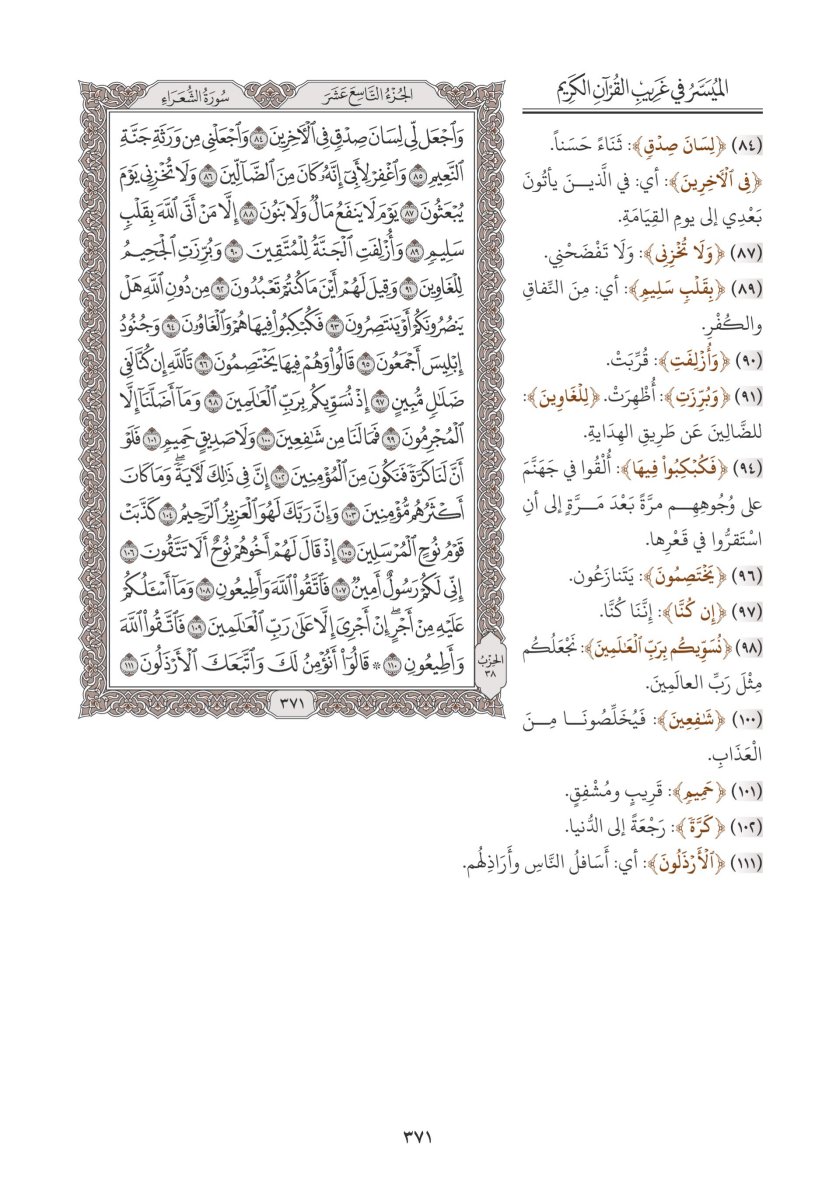 الميسر في غريب القرآن الكريم
الجزء التاسع عشر
سورة الشعراء
وَٱجۡعَل لِّي لِسَانَ صِدۡقٖ فِي ٱلۡأٓخِرِينَ ٨٤ وَٱجۡعَلۡنِي مِن وَرَثَةِ جَنَّةِ
ٱلنَّعِيمِ ٨٥ وَٱغۡفِرۡ لِأَبِيٓ إِنَّهُۥ كَانَ مِنَ ٱلضَّآلِّينَ ٨٦ وَلَا تُخۡزِنِي يَوۡمَ
يُبۡعَثُونَ ٨٧ يَوۡمَ لَا يَنفَعُ مَالٞ وَلَا بَنُونَ ٨٨ إِلَّا مَنۡ أَتَى ٱللَّهَ بِقَلۡبٖ
سَلِيمٖ ٨٩ وَأُزۡلِفَتِ ٱلۡجَنَّةُ لِلۡمُتَّقِينَ ٩٠ وَبُرِّزَتِ ٱلۡجَحِيمُ
لِلۡغَاوِينَ ٩١ وَقِيلَ لَهُمۡ أَيۡنَ مَا كُنتُمۡ تَعۡبُدُونَ ٩٢ مِن دُونِ ٱللَّهِ هَلۡ
يَنصُرُونَكُمۡ أَوۡ يَنتَصِرُونَ ٩٣ فَكُبۡكِبُواْ فِيهَا هُمۡ وَٱلۡغَاوُۥنَ ٩٤ وَجُنُودُ
إِبۡلِيسَ أَجۡمَعُونَ ٩٥ قَالُواْ وَهُمۡ فِيهَا يَخۡتَصِمُونَ ٩٦ تَٱللَّهِ إِن كُنَّا لَفِي
ضَلَٰلٖ مُّبِينٍ ٩٧ إِذۡ نُسَوِّيكُم بِرَبِّ ٱلۡعَٰلَمِينَ ٩٨ وَمَآ أَضَلَّنَآ إِلَّا
ٱلۡمُجۡرِمُونَ ٩٩ فَمَا لَنَا مِن شَٰفِعِينَ ١٠٠ وَلَا صَدِيقٍ حَمِيمٖ ١٠١ فَلَوۡ
أَنَّ لَنَا كَرَّةٗ فَنَكُونَ مِنَ ٱلۡمُؤۡمِنِينَ ١٠٢ إِنَّ فِي ذَٰلِكَ لَأٓيَةٗۖ وَمَا كَانَ
أَكۡثَرُهُم مُّؤۡمِنِينَ ١٠٣ وَإِنَّ رَبَّكَ لَهُوَ ٱلۡعَزِيزُ ٱلرَّحِيمُ ١٠٤ كَذَّبَتۡ
قَوۡمُ نُوحٍ ٱلۡمُرۡسَلِينَ ١٠٥ إِذۡ قَالَ لَهُمۡ أَخُوهُمۡ نُوحٌ أَلَا تَتَّقُونَ ١٠٦
إِنِّي لَكُمۡ رَسُولٌ أَمِينٞ ١٠٧ فَٱتَّقُواْ ٱللَّهَ وَأَطِيعُونِ ١٠٨ وَمَآ أَسۡـَٔلُكُمۡ
عَلَيۡهِ مِنۡ أَجۡرٍۖ إِنۡ أَجۡرِيَ إِلَّا عَلَىٰ رَبِّ ٱلۡعَٰلَمِينَ ١٠٩ فَٱتَّقُواْ ٱللَّهَ
وَأَطِيعُونِ ١١٠ ۞ قَالُوٓاْ أَنُؤۡمِنُ لَكَ وَٱتَّبَعَكَ ٱلۡأَرۡذَلُونَ ١١١
الحزب
٣٨
٣٧١
(٨٤) ﴿لِسَانَ صِدۡقٖ﴾: ثَنَاءً حَسَناً.
﴿فِي ٱلۡأٓخِرِينَ﴾: أي: في الَّذينَ يأتُونَ
بَعْدِي إلى يومِ القِيَامَةِ.
(٨٧) ﴿وَلَا تُخۡزِنِي﴾: وَلَا تَفْضَحْنِي.
(٨٩) ﴿بِقَلۡبٖ سَلِيمٖ﴾: أي: مِنَ النِّفاقِ
والكُفْرِ.
(٩٠) ﴿وَأُزۡلِفَتِ﴾: قُرِّبَتْ.
(٩١) ﴿وَبُرِّزَتِ﴾: أُظْهِرَتْ. ﴿لِلۡغَاوِينَ﴾:
للضَّالِينَ عَن طَرِيقِ الهِدَايَةِ.
(٩٤) ﴿فَكُبۡكِبُواْ فِيهَا﴾: أُلْقُوا في جَهَنَّمَ
على وُجُوهِهِم مرَّةً بَعْدَ مَرَّةٍ إلى أنِ
اسْتَقرُّوا في قَعْرِها.
(٩٦) ﴿يَخۡتَصِمُونَ﴾: يَتَنازَعُون.
(٩٧) ﴿إِن كُنَّا﴾: إنَّنَا كُنَّا.
(٩٨) ﴿نُسَوِّيكُم بِرَبِّ ٱلۡعَٰلَمِينَ﴾: نَجْعَلُكُم
مِثْلَ رَبِّ العالَمِينَ.
(١٠٠) ﴿شَٰفِعِينَ﴾: فَيُخَلِّصُونَا مِنَ
الْعَذَابِ.
(١٠١) ﴿حَمِيمٖ﴾: قَرِيبٍ ومُشْفِقٍ.
(١٠٢) ﴿كَرَّةٗ﴾: رَجْعَةً إلى الدُّنيا.
(١١١) ﴿ٱلۡأَرۡذَلُونَ﴾: أي: أَسَافلُ النَّاسِ وأَرَاذِلُهُم.
٣٧١